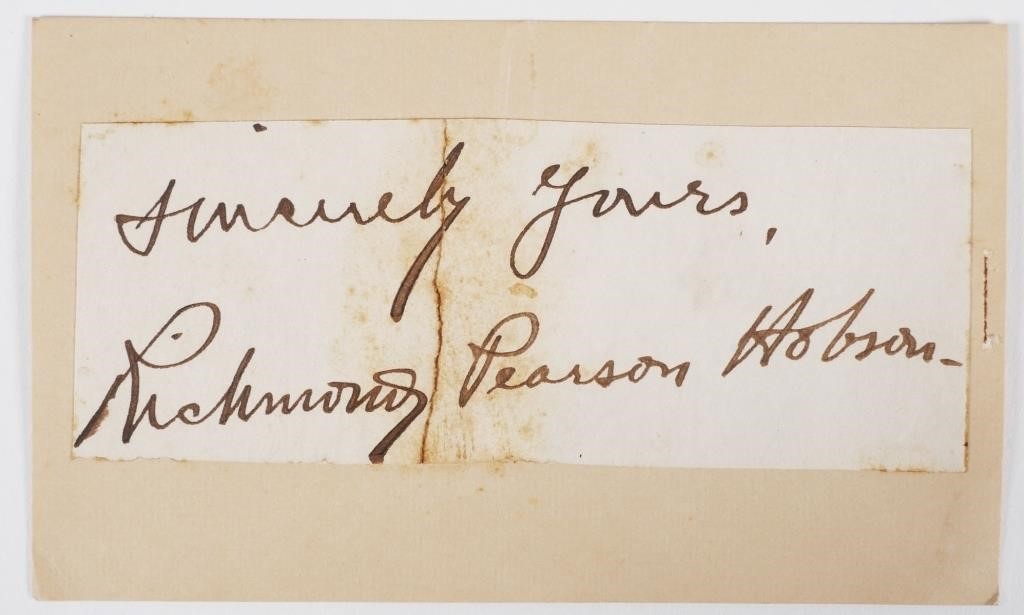 Sincerely Yours,
Richmond Pearson Hobson-